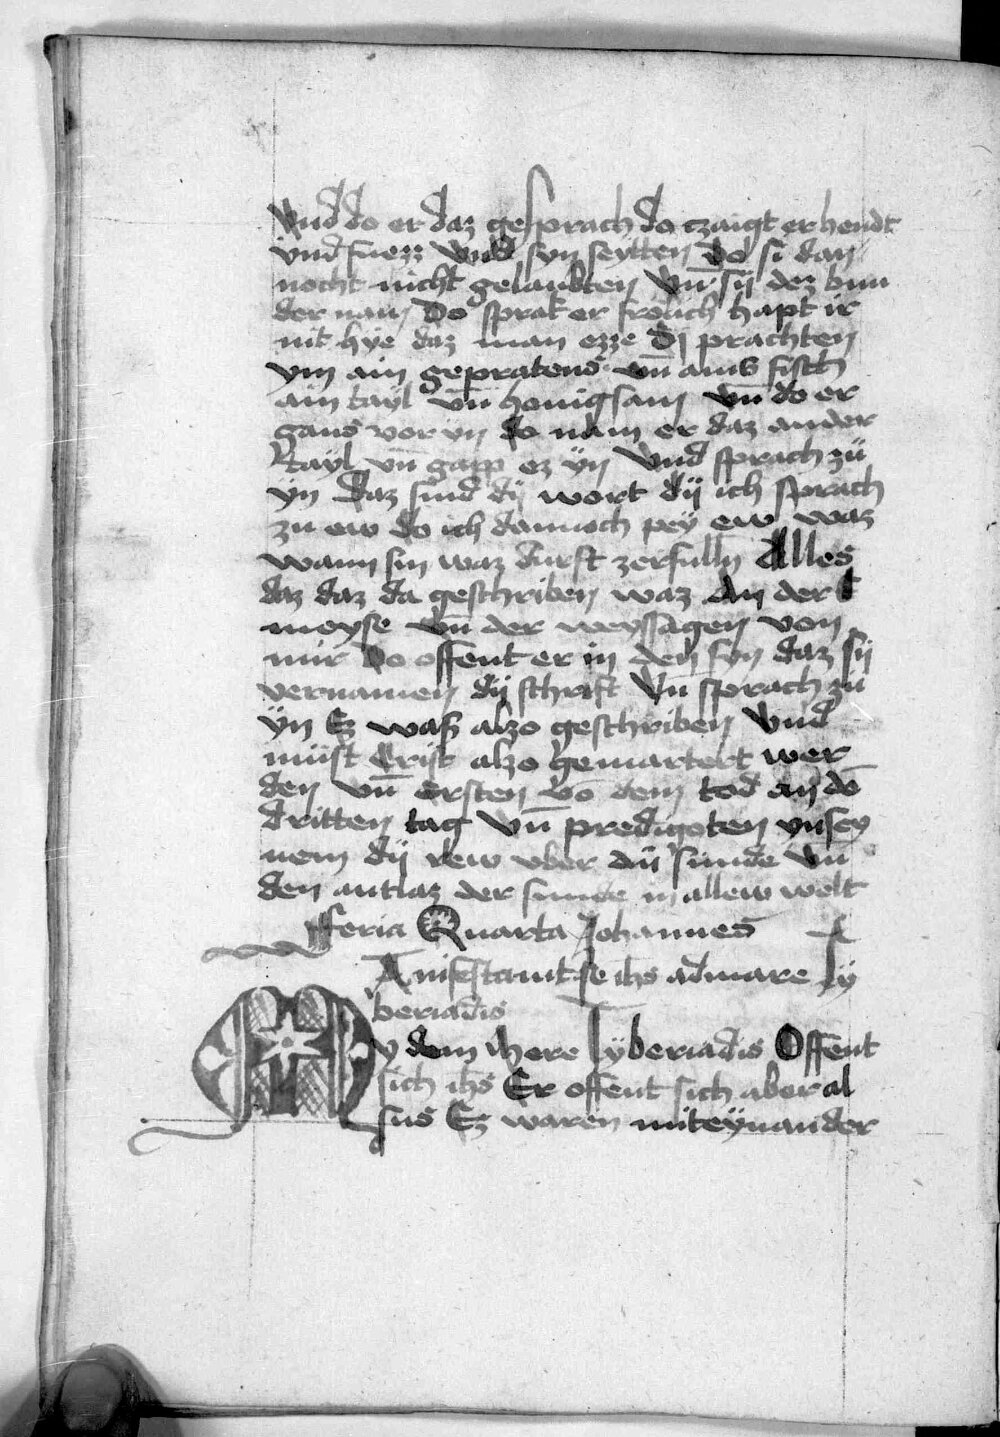 Vnd do er daz gesprach do czaigt er hendt
vnd fuezz vnd syn seytten do si dan
nocht nicht gelaubten vn̄ sij dez bun
der nam Do sprak er frölich hapt ir
nit hye daz man ezze Dj prachten
ym ain gepratens vn̄ ains fisch
ain tayl vn̄ honigsam vn̄ do er
gans vor yn do nam er daz ander
tayl vn̄ gapp ez ÿn Vnd sprach zü
ÿn Daz sind dij wort dij ich sprach
zu ew do ich dannoch pey ew waz
wann sin waz durft zerfulln Alles
daz daz da geschriben waz An der E
moyse vn̄ der weyssagen von
mir Do offent er in den syn daz sij
vernamen dij schrift Vn̄ sprach zu
ÿn Ez waß alzo geschriben Vnd
müst Crist alzo gemartert wer
den vn̄ ersten vō dem tod an dē
dritten tag Vn̄ predigoten yn sey
nem dij rew vber dü sünde vn̄
den antlaz der sunde in allew welt
feria Quarta Johannes
Anifestauit se ihs ad mare Ty
beriadis
y dem mere Tyberiadis Offent
sich ihs Er offent sich aber al
sus Ez waren miteÿnander